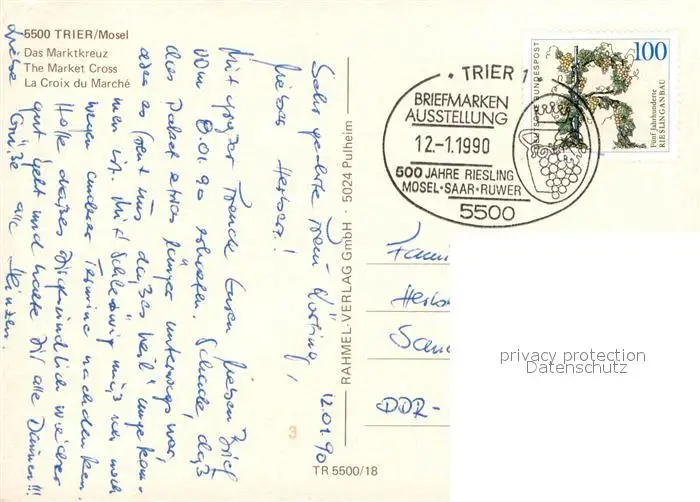 5500 TRIER/Mosel
Das Marktkreuz
The Market Cross
La Croix du Marché
Sehr geehrte Frau Körting,
lieber Herbert!
12.01.90
Mit großer Freude Euren lieben Brief
vom 8.01.90 erhalten. Schade, daß
das Paket etwas länger unterwegs war,
aber es freut uns, daß es "heil" angekom-
men ist. Mit Schleswig muß man noch
wegen anderer Termine nachdenken.
Hoffe daß es Dir gesundheitlich wieder
gut geht und halte Dir alle Daumen!!!
Liebe Grüße alle
RAHMEL-VERLAG GmbH · 5024 Pulheim
TR 5500/18
3
· TRIER 1
BRIEFMARKEN
AUSSTELLUNG
12.-1.1990
500 JAHRE RIESLING
MOSEL·SAAR·RUWER
5500
DEUTSCHE BUNDESPOST
100
Fünf Jahrhunderte
RIESLINGANBAU
Fam
Herb
San
DDR-
privacy protection
Datenschutz